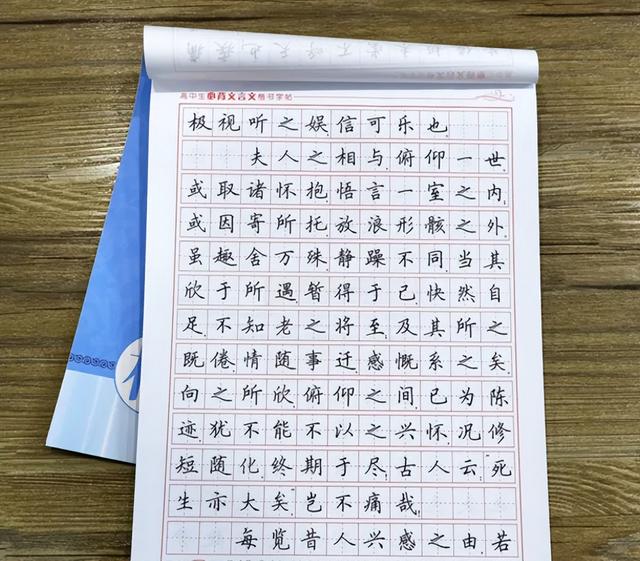 高中生必背文言文楷书字帖
极视听之娱，信可乐也。
夫人之相与，俯仰一世，
或取诸怀抱，悟言一室之内；
或因寄所托，放浪形骸之外。
虽趣舍万殊，静躁不同，当其
欣于所遇，暂得于己，快然自
足，不知老之将至，及其所之
既倦，情随事迁，感慨系之矣。
向之所欣，俯仰之间，已为陈
迹，犹不能不以之兴怀，况修
短随化，终期于尽！古人云：“死
生亦大矣。”岂不痛哉！
每览昔人兴感之由，若